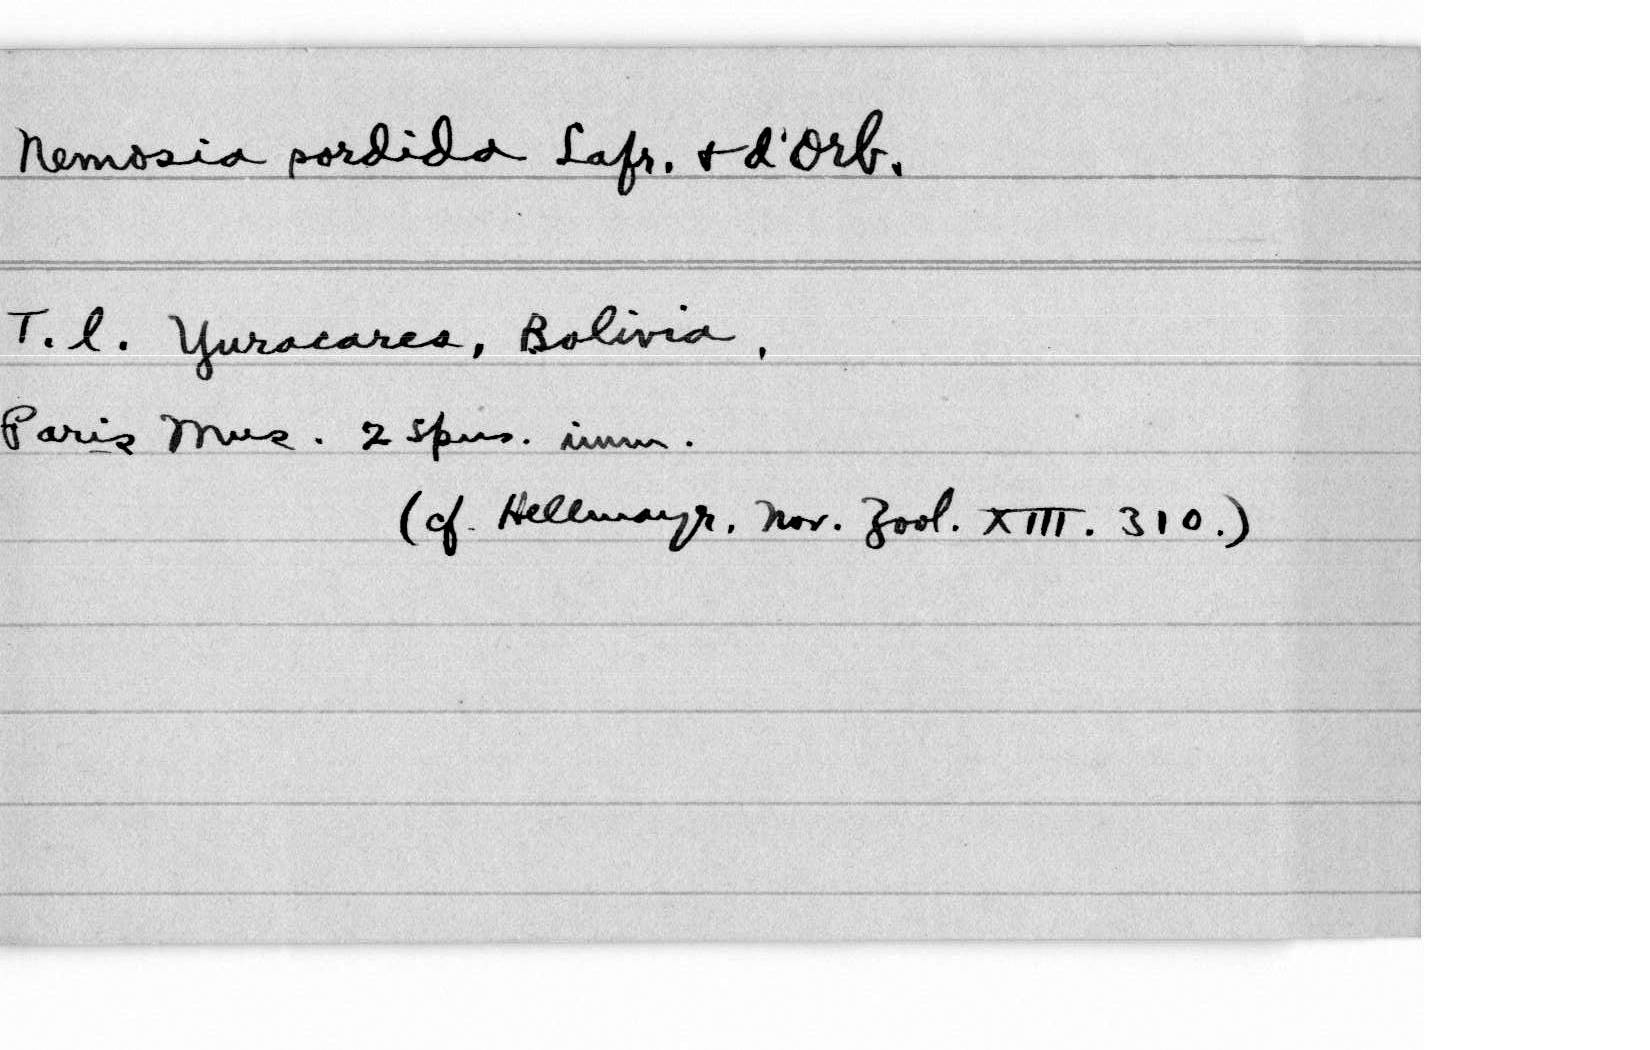 Nemosia sordida Lafr. & d'Orb.
T. l. Yuracares, Bolivia.
Paris Mus. 2 spms. imm.
(cf. Hellmayr, Nov. Zool. XIII. 310.)